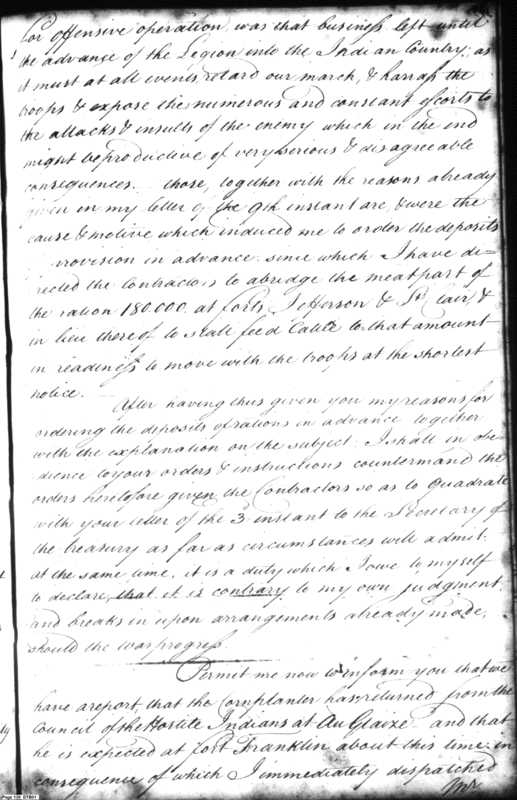 for offensive operation, was that business left until
the advance of the Legion into the Indian Country; as
it must at all events, retard our march, & harrass the
troops & expose the numerous and constant escorts to
the attacks & insults of the enemy which in the end
might be productive of very serious & disagreeable
consequences. those, together with the reasons already
given in my letter of the 9th instant are, & were the
cause & motive which induced me to order the deposits
provision in advance. since which I have di=
rected the Contractors to abridge the meat part of
the ration 180.000 at forts Jefferson & St. Clair, &
in lieu thereof to stall feed Cattle to that amount
in readiness to move with the troops at the shortest
notice.
After having thus given you my reasons for
ordering the deposits of rations in advance together
with the explanation on the subject, I shall in obe=
dience to your orders & instructions countermand the
orders heretofore given the Contractors so as to quadrate
with your letter of the 3 instant to the Secretary of
the treasury as far as circumstances will admit.
at the same time, it is a duty which I owe to myself
to declare, that it is contrary to my own judgment
and breaks in upon arrangements already made,
should the war progress.
Permit me now to inform you that we
have a report that the Cornplanter has returned from the
Council of the Hostile Indians at Au Glaize and that
he is expected at fort Franklin about this time: in
consequence of which I immediately dispatched
Mr.
Page 159 DTB01